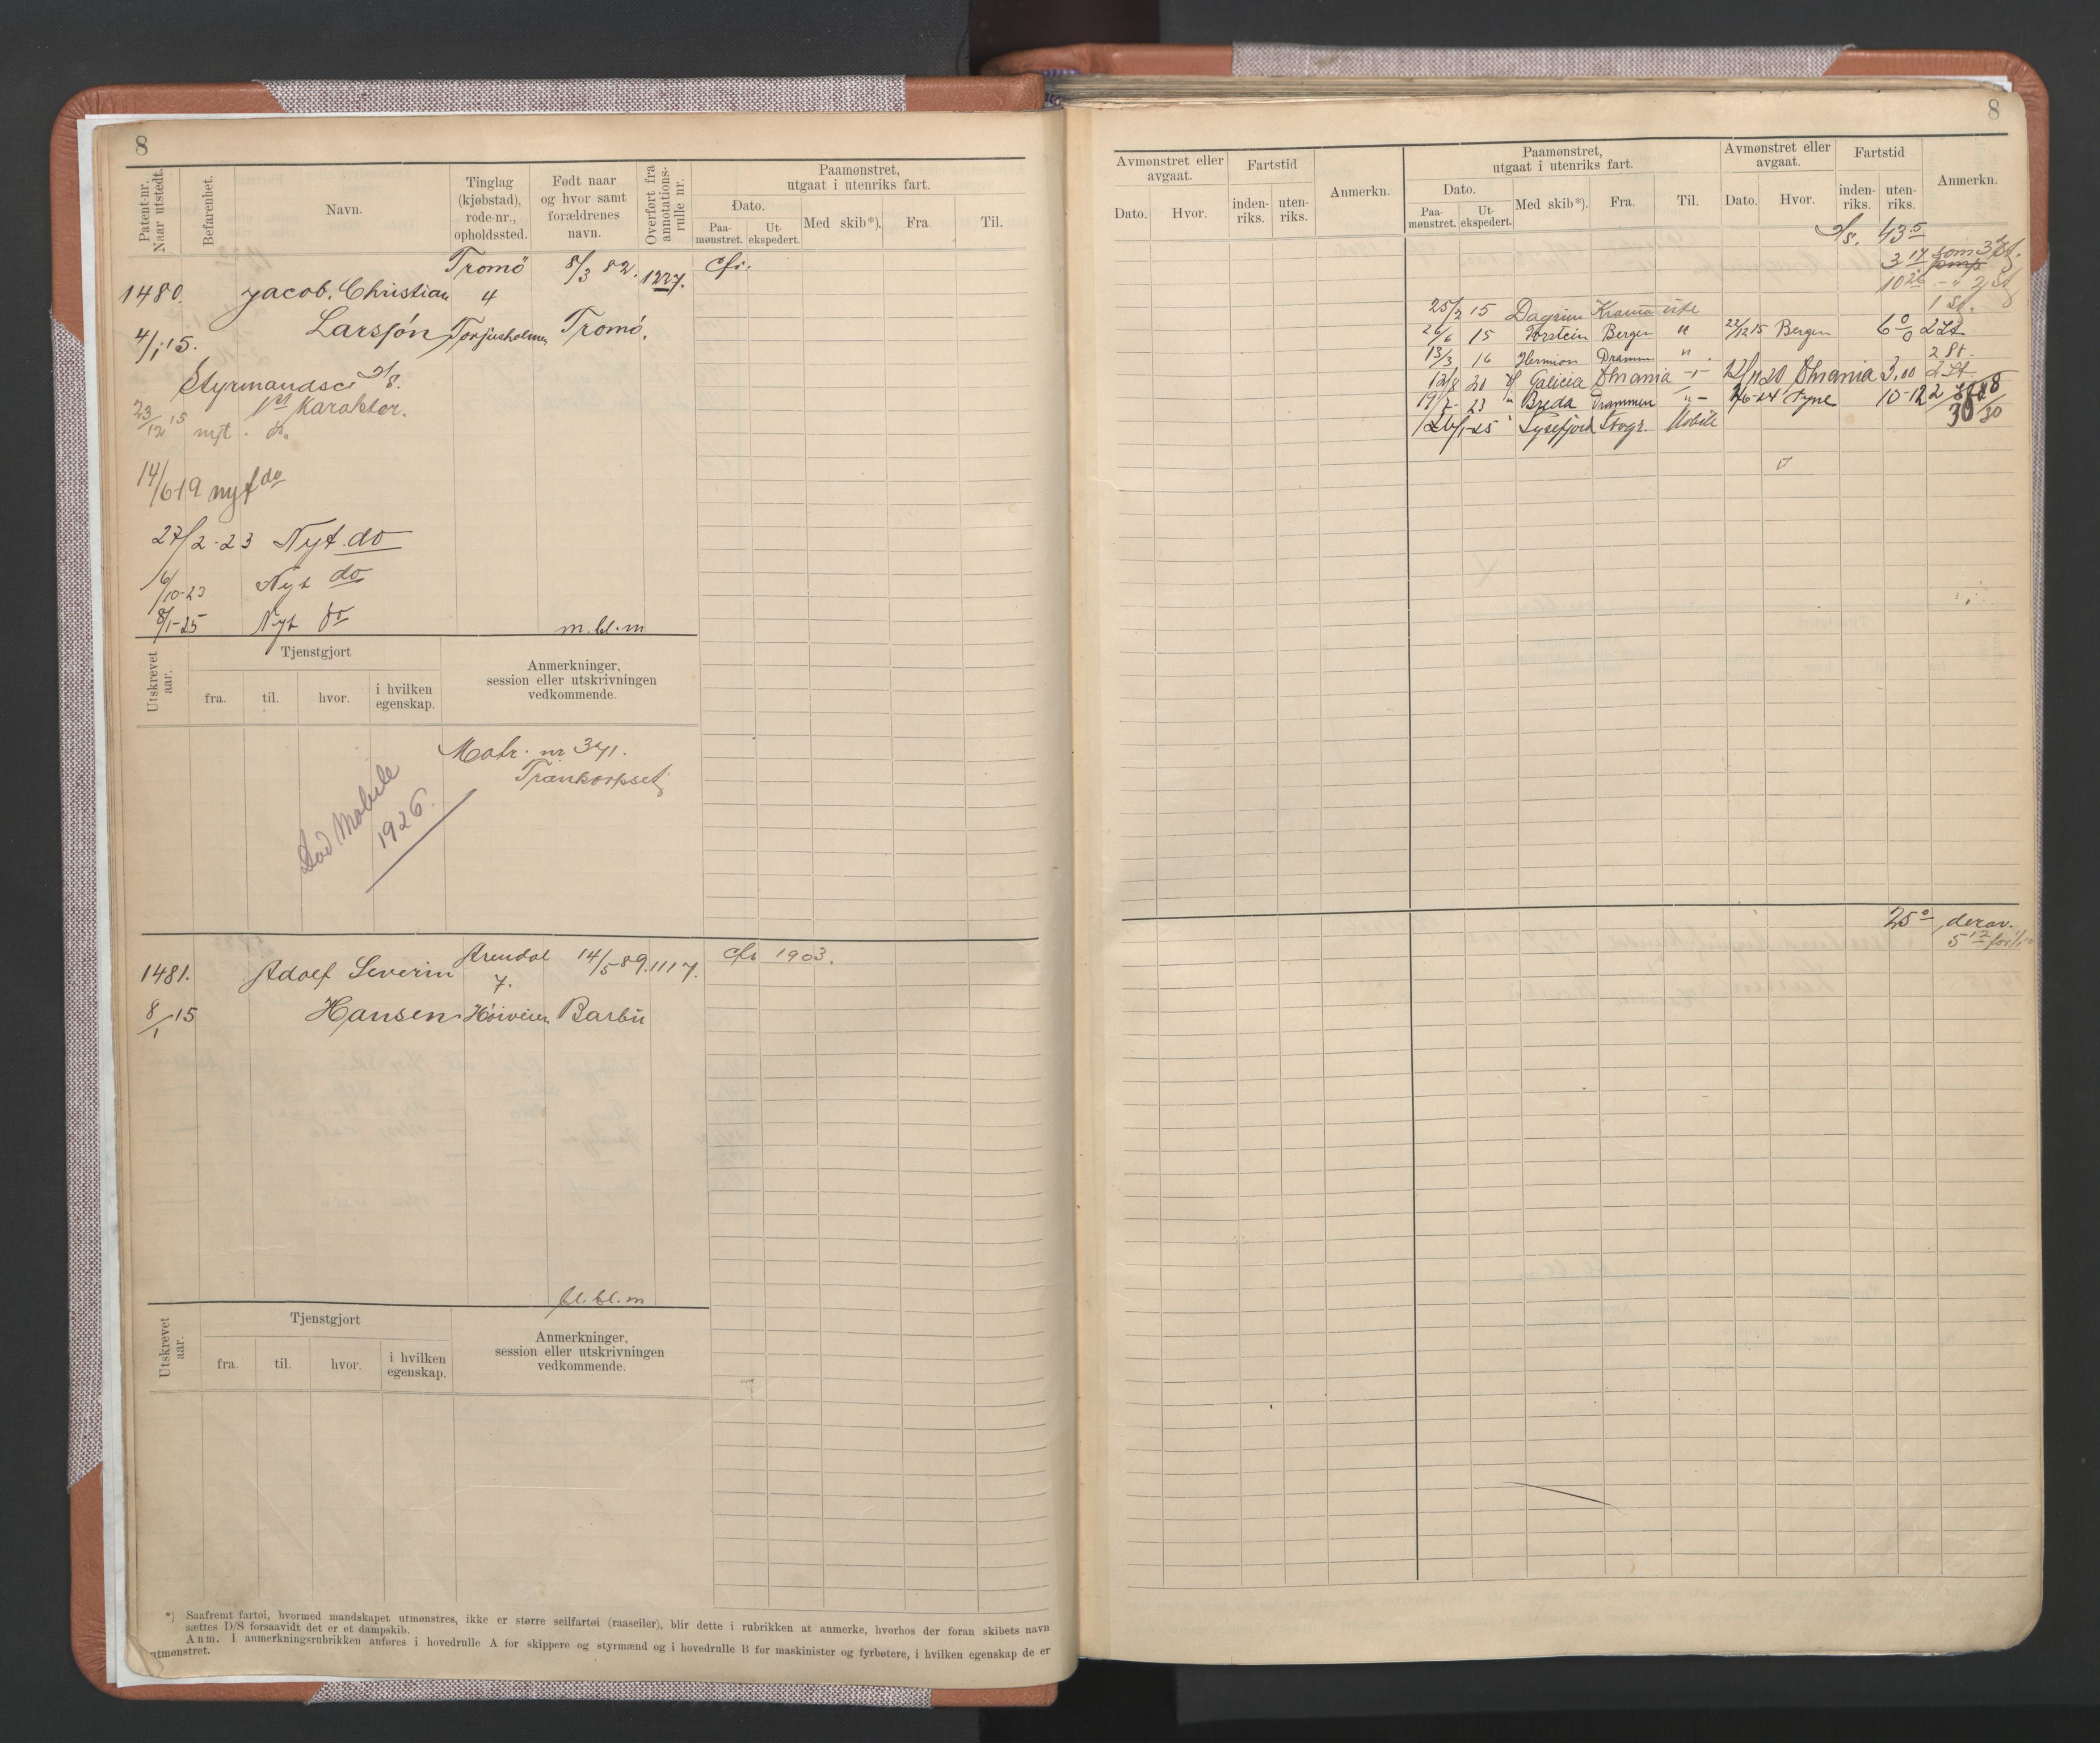 8
Patent-nr. Naar utstedt.
Befarenhet.
Navn.
Tinglag (kjøbstad), rode-nr., opholdssted.
Født naar og hvor samt forældrenes navn.
Overført fra annotations-rulle nr.
Paamønstret, utgaat i utenriks fart.
Dato.
Paa-mønstret.
Ut-ekspedert.
Med skib*).
Fra.
Til.
1480. Jacob. Christian Tromö 4 8/3 82. 1227. cfr.
4/1 15. Larssön Torjusholmen Tromö.
Styrmandsci
1st Karakter.
23/12 15 nyt. do.
14/6 19 nyt do
27/2-23 Nyt do
6/10-23 Nyt do
8/1-25 Nyt do
m. bl. m
Utskrevet aar.
Tjenstgjort
fra.
til.
hvor.
i hvilken egenskap.
Anmerkninger, session eller utskrivningen vedkommende.
Matr. nr 371.
Trænkorpset
Död Mobile
1926.
1481. Adolf Severin Arendal 7. 14/5 89. 1117. cfr 1903.
8/1 15 Hansen Höiveien Barbu
bl. bl. m
Utskrevet aar.
Tjenstgjort
fra.
til.
hvor.
i hvilken egenskap.
Anmerkninger, session eller utskrivningen vedkommende.
*) Saafremt fartøi, hvormed mandskapet utmønstres, ikke er større seilfartøi (raaseiler), blir dette i rubrikken at anmerke, hvorhos der foran skibets navn
sættes D/S forsaavidt det er et dampskib.
Anm. I anmerkningsrubrikken anføres i hovedrulle A for skippere og styrmænd og i hovedrulle B for maskinister og fyrbøtere, i hvilken egenskap de er
utmønstret.
8
Avmønstret eller avgaat.
Dato.
Hvor.
Fartstid
inden-riks.
uten-riks.
Anmerkn.
Paamønstret, utgaat i utenriks fart.
Dato.
Paa-mønstret.
Ut-ekspedert.
Med skib*).
Fra.
Til.
Avmønstret eller avgaat.
Dato.
Hvor.
Fartstid
inden-riks.
uten-riks.
Anmerkn.
43 5
3 17 som 3 St.
10 26 - " 2 St
1 St.
25/2 15 Dagrun Krania ute
26/6 15 Torstein Bergen " 22/12 15 Bergen 6 0 2 St
13/3 16 Hermion Dramm " 2 St.
12/8 20 Galicia Khrania -"- 12/11 20 Khrania 3.00 2 St
19/7-23 " Breda Drammen -"- 7/6-24 Tyne 10-12 2 St
30/30
26/1-25 " Lysefjord Tbgr. Mobile
25 0 derav.
5 12 för 1/1 10